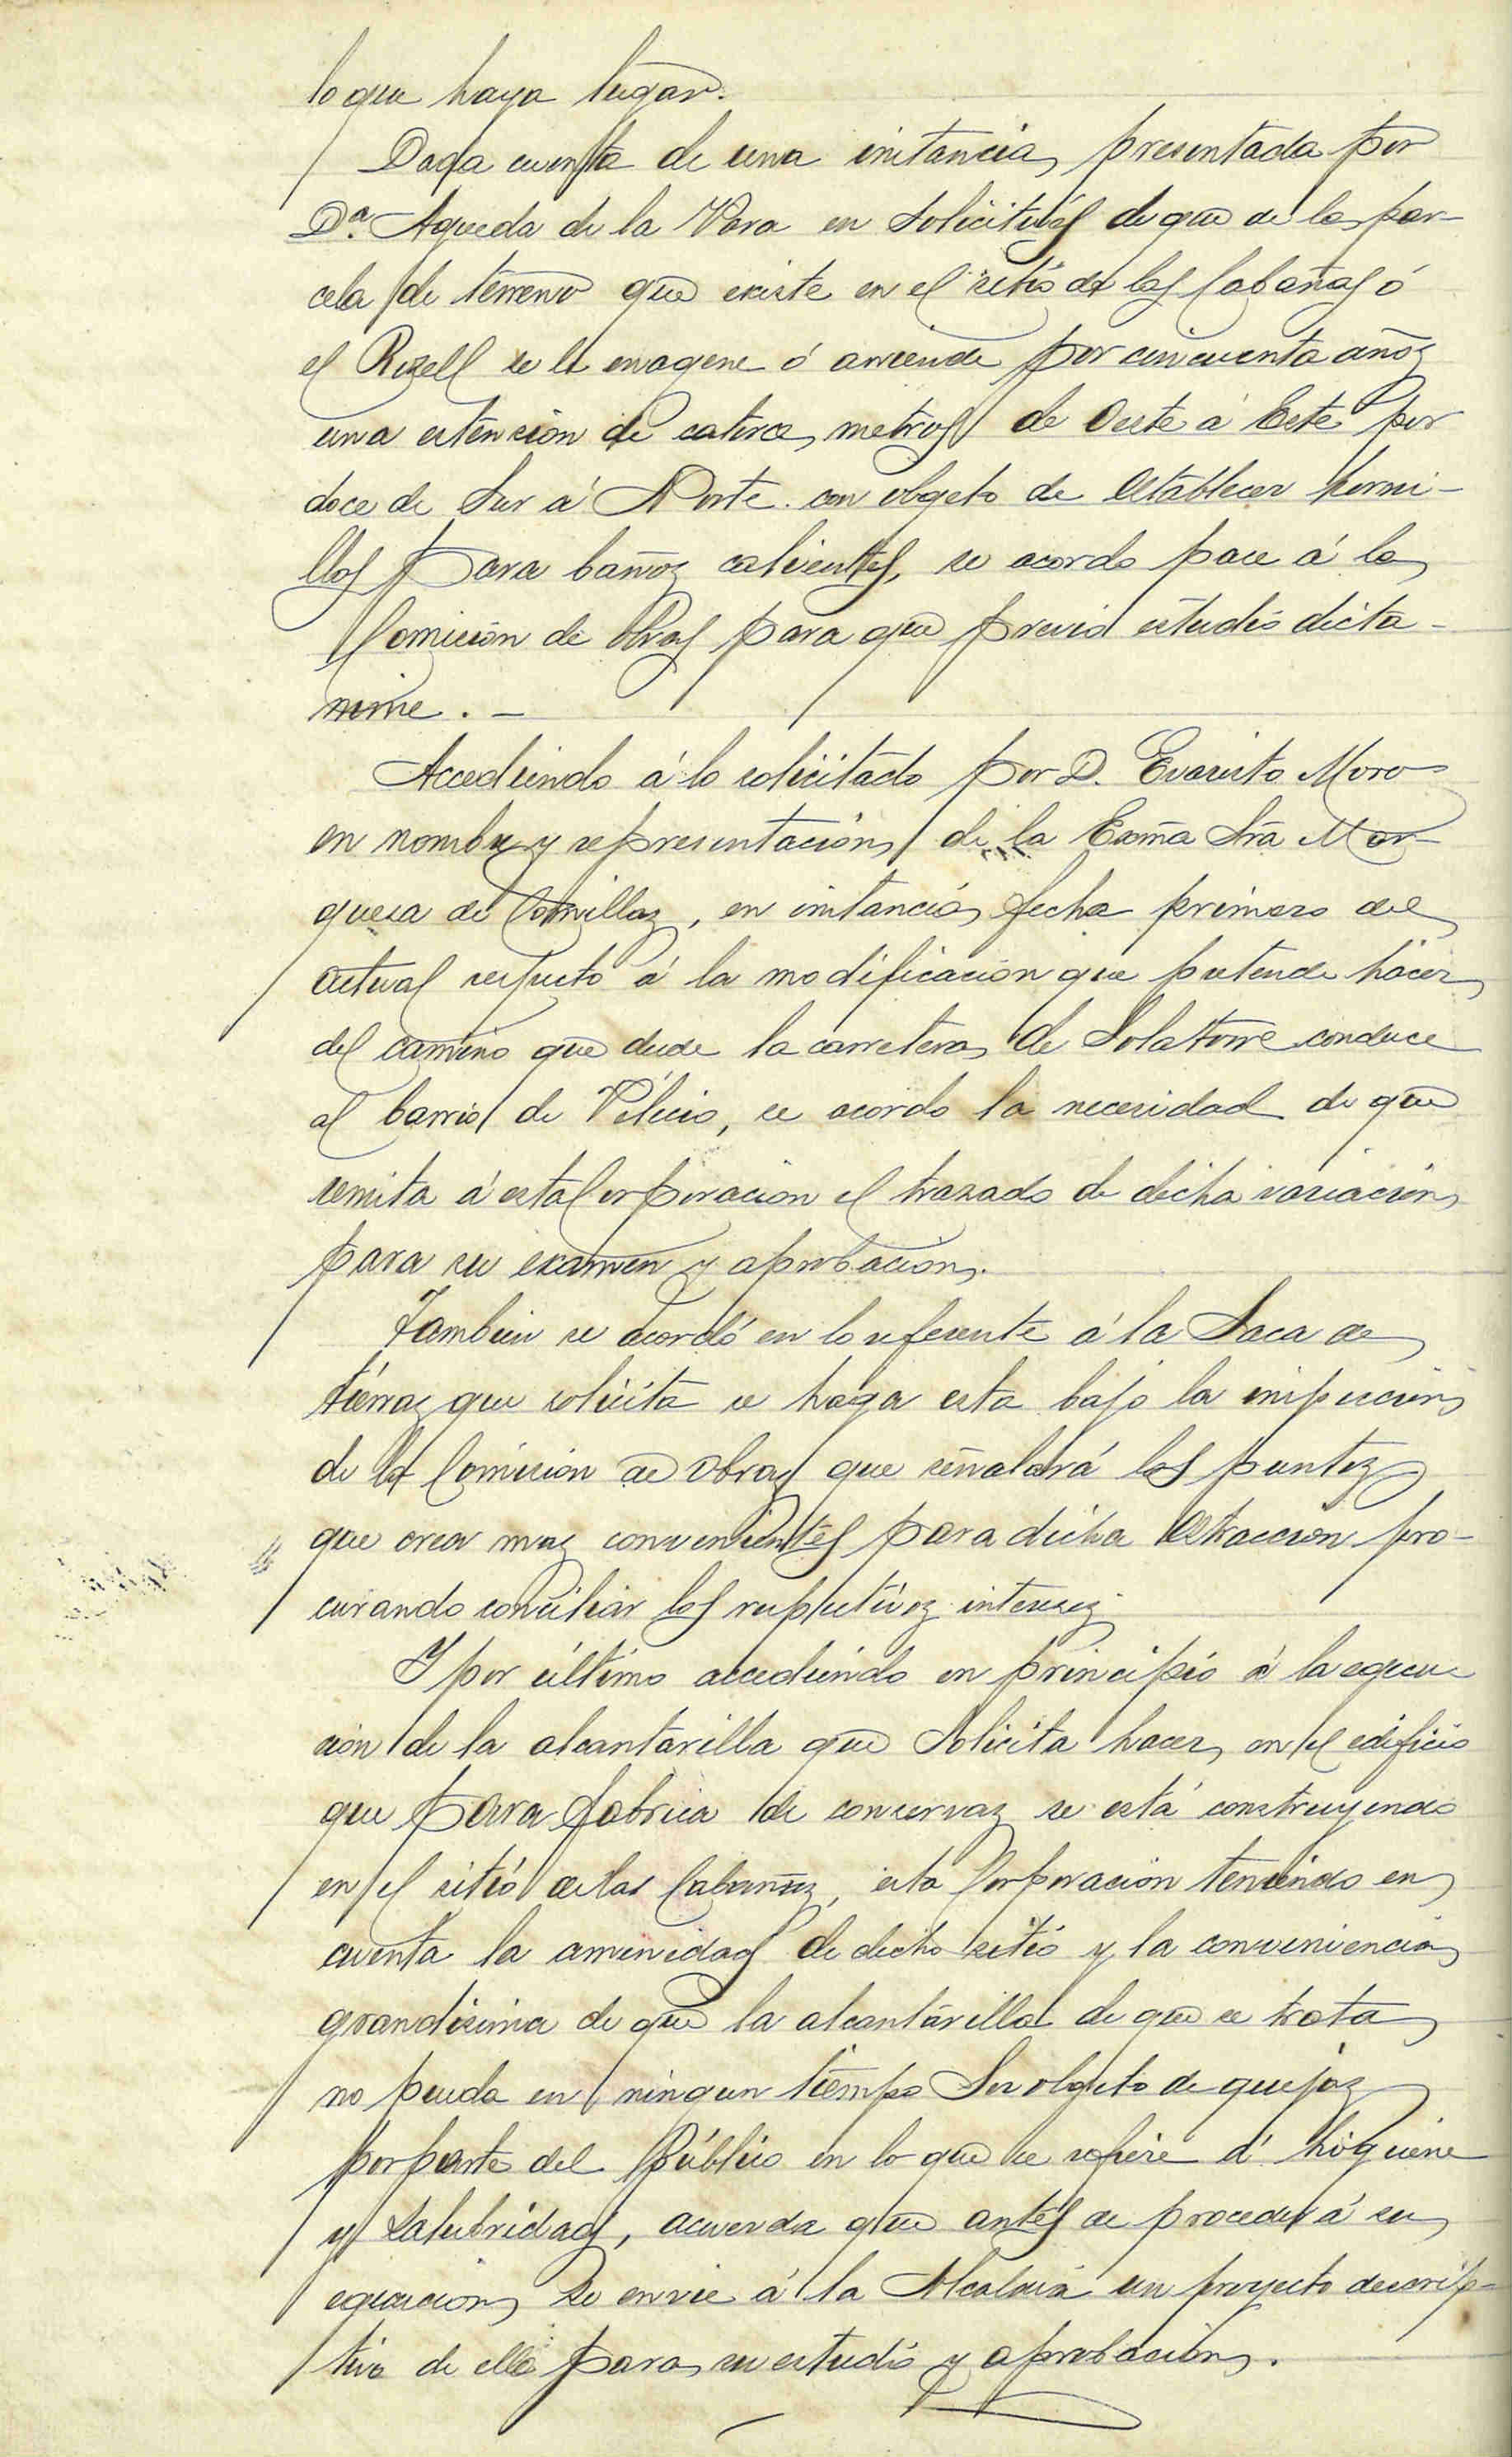 lo que haya lugar.
Dada cuenta de una instancia presentada por
Dª Agueda de la Vara en solicitud de que de la par-
cela de terreno que existe en el sitio de las Cabañas ó
el Rizell se le enagene ó arriende por cincuenta años
una estensión de catorce metros de Oeste á Este por
doce de Sur á Norte con objeto de establecer horni-
llos para baños calientes, se acordo pase á la
Comisión de obras para que previo estudio dicta-
mine. -
Accediendo á lo solicitado por D. Evaristo Moro
en nombre y representación de la Exmª Srª Mar-
quesa de Comillas, en instancia fecha primero del
actual respecto á la modificacion que pretende hacer
del camino que desde la carretera de Solatorre conduce
al barrio de Velecio, se acordo la necesidad de que
remita á esta Corporacion el trazado de dicha variacion
para su examen y aprobación.
Tambien se acordó en lo referente á la Saca de
tierras que solicita se haga esta bajo la inspeccion
de la Comision de Obras que señalará los puntos
que crea mas convenientes para dicha estraccion pro-
curando conciliar los respectivos intereses
Y por último accediendo en principio á la egecu-
ción de la alcantarilla que solicita hacer en el edificio
que para fabrica de conservas se está construyendo
en el sitio de las Cabañas, esta Corporacion teniendo en
cuenta la amenidad de dicho sitio y la conveniencia
grandisima de que la alcantarilla de que se trata
no pueda en ningun tiempo ser objeto de quejas
por parte del Público en lo que se refiere á higuiene
y salubridad, acuerda que antes de proceder á su
egecucion se envie á la Alcaldia un proyecto descrip-
tivo de ella para su estudio y aprobacion.